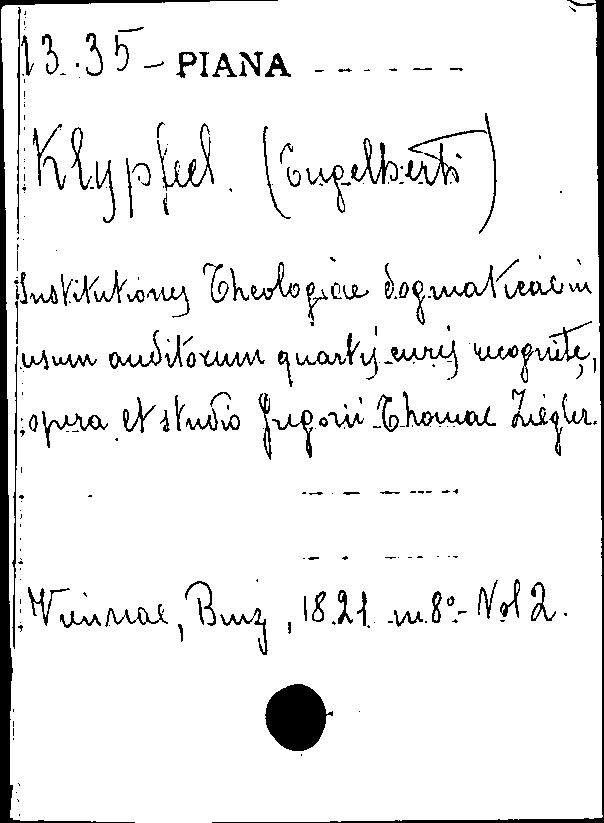 13.35- PIANA
Klypfeel. (Engelberti)
Institutiones Theologiae dogmaticae in
usum auditorum quartis curis recognite,
opera et studio Gregorii Thomae Ziegler.
Viennae, Binz, 1821 in 8º- Vol 2.